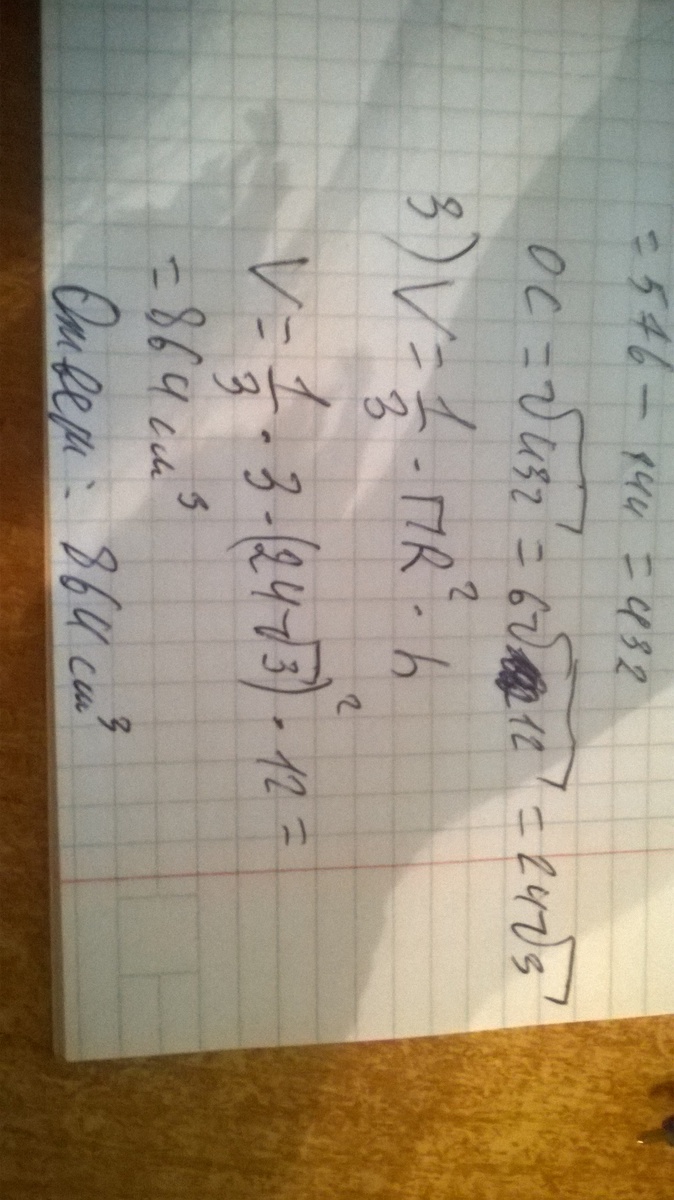 = 576 - 144 = 432
OC = √432 = 6√12 = 24√3
3) V = 1/3 · ПR² · h
V = 1/3 · 3 · (24√3)² · 12 =
= 864 см³
Ответ: 864 см³